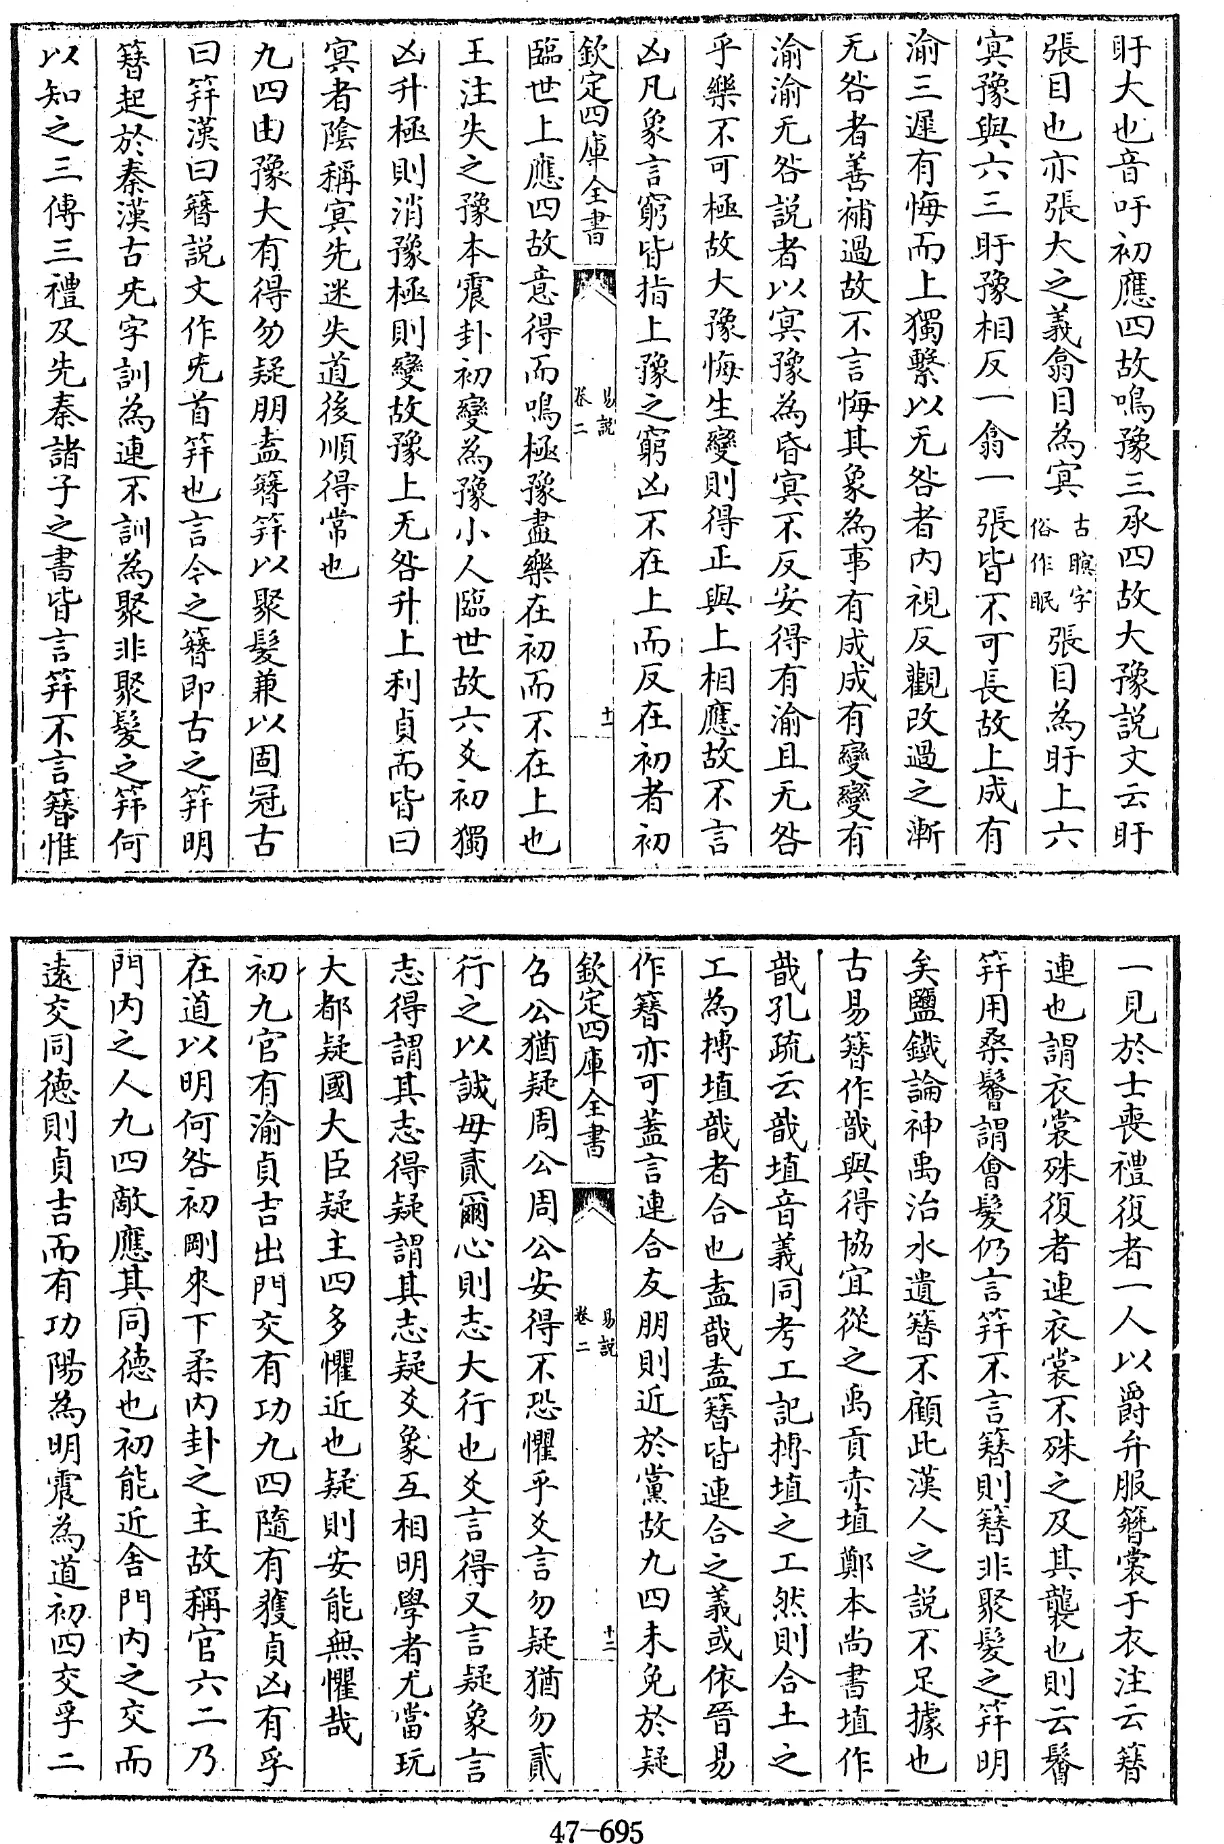 盱大也音吁初應四故鳴豫三承四故大豫説文云盱
張目也亦張大之義翕目為冥古瞑字俗作眠張目為盱上六
冥豫與六三盱豫相反一翕一張皆不可長故上成有
渝三遲有悔而上獨繫以无咎者内視反觀改過之漸
无咎者善補過故不言悔其象為事有成成有變變有
渝渝无咎説者以冥豫為昏冥不反安得有渝且无咎
乎樂不可極故大豫悔生變則得正與上相應故不言
凶凡象言窮皆指上豫之窮凶不在上而反在初者初
欽定四庫全書
易説
卷二
十一
臨世上應四故意得而鳴極豫盡樂在初而不在上也
王注失之豫本震卦初變為豫小人臨世故六爻初獨
凶升極則消豫極則變故豫上无咎升上利貞而皆曰
冥者陰稱冥先迷失道後順得常也
九四由豫大有得勿疑朋盍簪笄以聚髮兼以固冠古
曰笄漢曰簪説文作兂首笄也言今之簪即古之笄明
簪起於秦漢古兂字訓為連不訓為聚非聚髮之笄何
以知之三傳三禮及先秦諸子之書皆言笄不言簪惟
一見於士喪禮復者一人以爵弁服簪裳于衣注云簪
連也謂衣裳殊復者連衣裳不殊之及其襲也則云鬠
笄用桑鬠謂會髮仍言笄不言簪則簪非聚髮之笄明
矣鹽鐵論神禹治水遺簪不顧此漢人之説不足據也
古易簪作戠與得協宜從之禹貢赤埴鄭本尚書埴作
戠孔疏云戠埴音義同考工記摶埴之工然則合土之
工為摶埴戠者合也盍戠盍簪皆連合之義或依晉易
作簪亦可蓋言連合友朋則近於黨故九四未免於疑
欽定四庫全書
易説
卷二
十二
召公猶疑周公周公安得不恐懼乎爻言勿疑猶勿貳
行之以誠毋貳爾心則志大行也爻言得又言疑象言
志得謂其志得疑謂其志疑爻象互相明學者尤當玩
大都疑國大臣疑主四多懼近也疑則安能無懼哉
初九官有渝貞吉出門交有功九四隨有獲貞凶有孚
在道以明何咎初剛來下柔内卦之主故稱官六二乃
門内之人九四敵應其同德也初能近舍門内之交而
遠交同德則貞吉而有功陽為明震為道初四交孚二
47-695